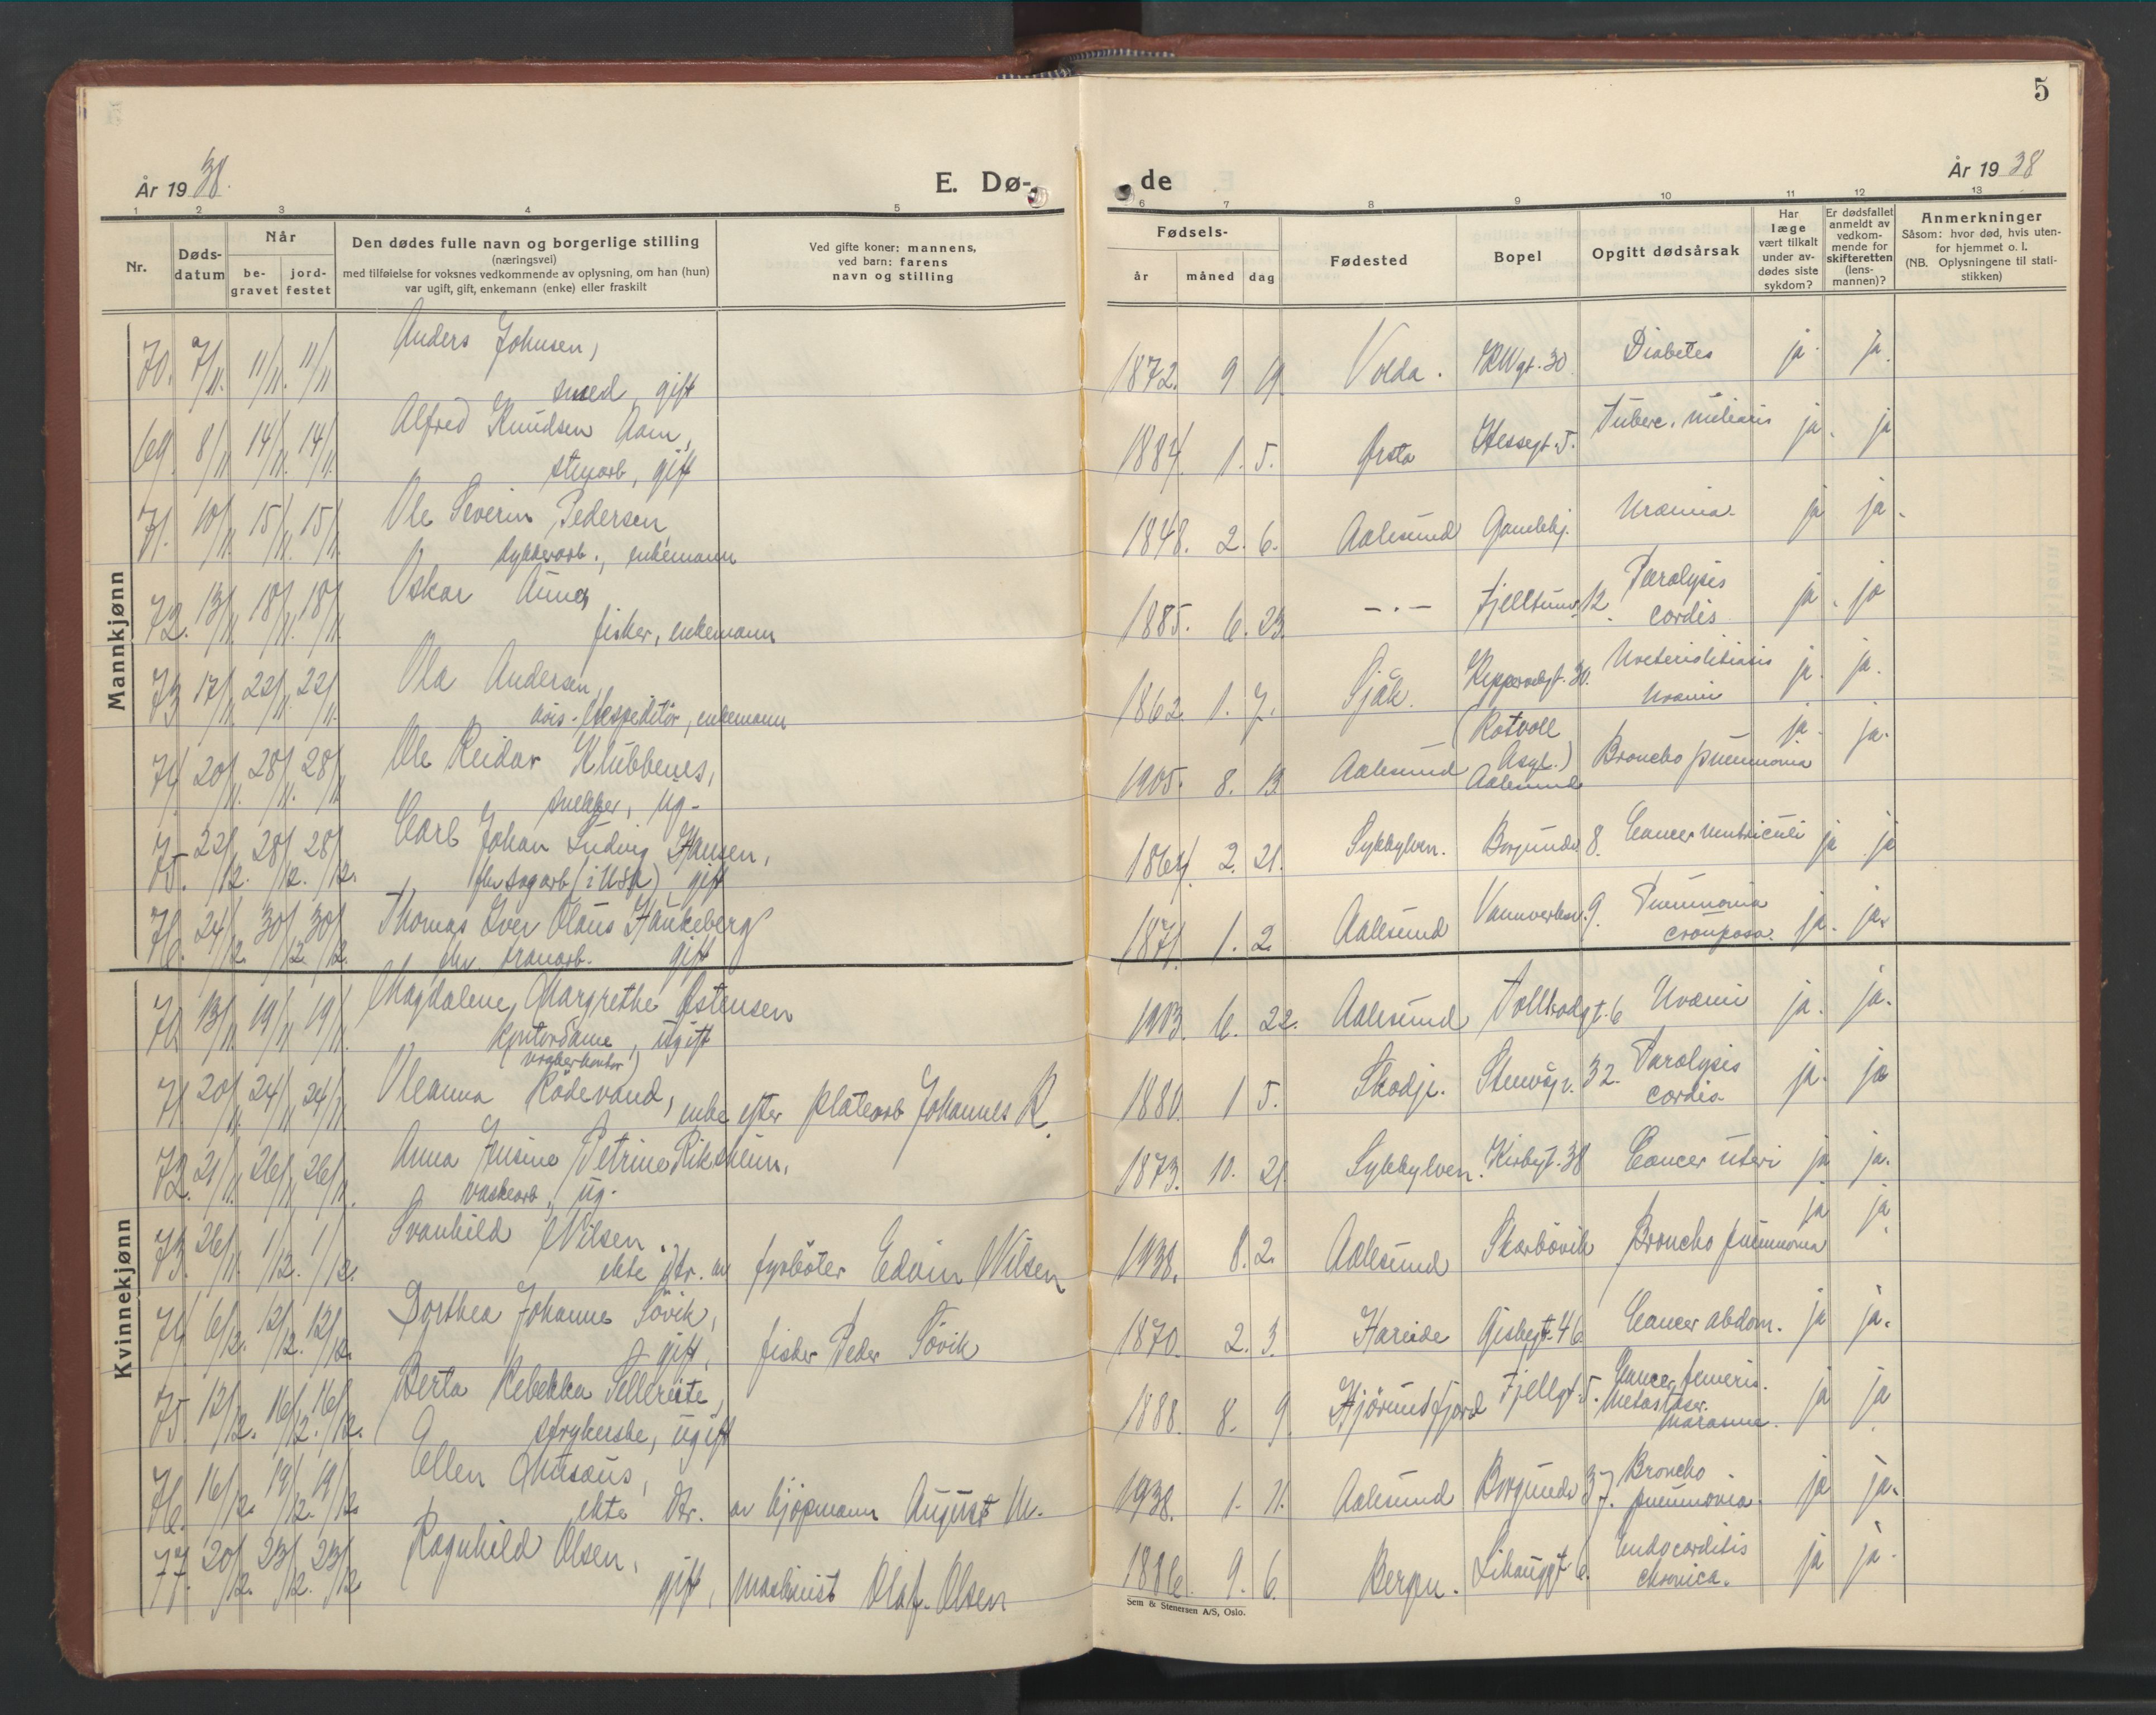 5
År 1938.
E. Dø-
de
År 1938
1 2 3 4 5 6 7 8 9 10 11 12 13
Nr.
Døds-
datum
Når
be-
gravet
jord-
festet
Den dødes fulle navn og borgerlige stilling
(næringsvei)
med tilføielse for voksnes vedkommende av oplysning, om han (hun)
var ugift, gift, enkemann (enke) eller fraskilt
Ved gifte koner: mannens,
ved barn: farens
navn og stilling
Fødsels-
år måned dag
Fødested
Bopel
Opgitt dødsårsak
Har
læge
vært tilkalt
under av-
dødes siste
sykdom?
Er dødsfallet
anmeldt av
vedkom-
mende for
skifteretten
(lens-
mannen)?
Anmerkninger
Såsom: hvor død, hvis uten-
for hjemmet o. l.
(NB. Oplysningene til stati-
stikken)
Mannkjønn
70. 7/11. 11/11. 11/11 Anders Johnsen,
smed, gift
1872. 9 19 Volda. 30 Diabetes ja. ja.
69. 8/11 14/11. 14/11. Alfred Knudsen Aam,
stenarb, gift
1884. 1. 5. Ørsta Hessegt. 5. Tuberc. miliaris ja. ja
71. 10/11. 15/11. 15/11. Ole Severin Pedersen
bykkerarb., enkemann
1848. 2. 6. Aalesund Gamlehj. Uræmia. ja ja.
72. 13/11. 18/11. 18/11 Oskar
fisker, enkemann
1885. 6. 23. -.- Fjelltunv. 12. Paralysis
cordis ja. ja
73 17/11. 22/11. 22/11. Ola Andersen,
avis-ekspeditör, enkemann
1862 1. 7. Sjåk. 30. Ureterolitiasis
Uræmi ja. ja.
74 20/11. 28/11. 28/11 Ole Reidar Klubbenes,
snekker, ug.
1905. 8. 13. Aalesund (Rotvoll
Asyl.)
Aalesund Broncho pneumonia ja. ja.
75. 22/12. 28/12. 28/12. Carl Johan Ludvig Hansen,
fhv sagarb (i USA), gift
1864. 2. 21. Sykkylven. Borgundv 8. Cancer ventriculi ja ja
76. 24/12. 30/12 30/12. Thomas Iver Olaus Haukeberg
fhv. tranarb. gift
1871. 1. 2. Aalesund Vannverksv. 9. Pneumonia
crouposa. ja. ja.
Kvinnekjønn
70. 13/11. 19/11 19/11. Magdalene Margrethe Østensen
kontordame, ugift
(vrakerkontor)
1903. 6. 22. Aalesund Tollbodgt. 6 Uræmi ja. ja.
71. 20/11. 24/11 24/11 Oleanna Rödevand, enke efter platearb Johannes R.
1880. 1 5. Skodje. Stenvågv. 32. Paralysis
cordis ja. ja
72. 21/11. 26/11 26/11. Anna Jensine Petrine Riksheim,
vaskearb, ug.
1873. 10. 21. Sykkylven. Kirkegt. 38 Cancer uteri ja ja.
73. 26/11. 1/12. 1/12. Svanhild Nilsen.
ekte dtr. av fyrböter Edvin Nilsen
1938. 8. 2. Aalesund Skarbövik Broncho pneumonia ja ja.
74 6/12. 12/12. 12/12. Dorthea Johanne Sövik,
gift, fisker Peder Sövik
1870. 2. 3. Hareide Giskegt. 46 Cancer abdom. ja ja.
75. 12/12. 16/12. 16/12. Berta Rebekka Sellereite,
strykerske, ugift
1888. 8. 9. Hjörundfjord Fjellgt. 5. Cancer femeris.
Metastaser.
marasme. ja ja.
76. 16/12. 19/12. 19/12. Ellen Musæus,
ekte dtr. av kjøpmann August M.
1938. 1. 21. Aalesund Borgundv 37. Broncho
pneumonia. ja ja.
77. 20/12. 23/12. 23/12 Ragnhild Olsen,
gift, maskinist Olaf Olsen
1886. 9. 6. Bergen. Lihauggt 6. Endocarditis
chronica. ja ja.
Sem & Stenersen A/S, Oslo.